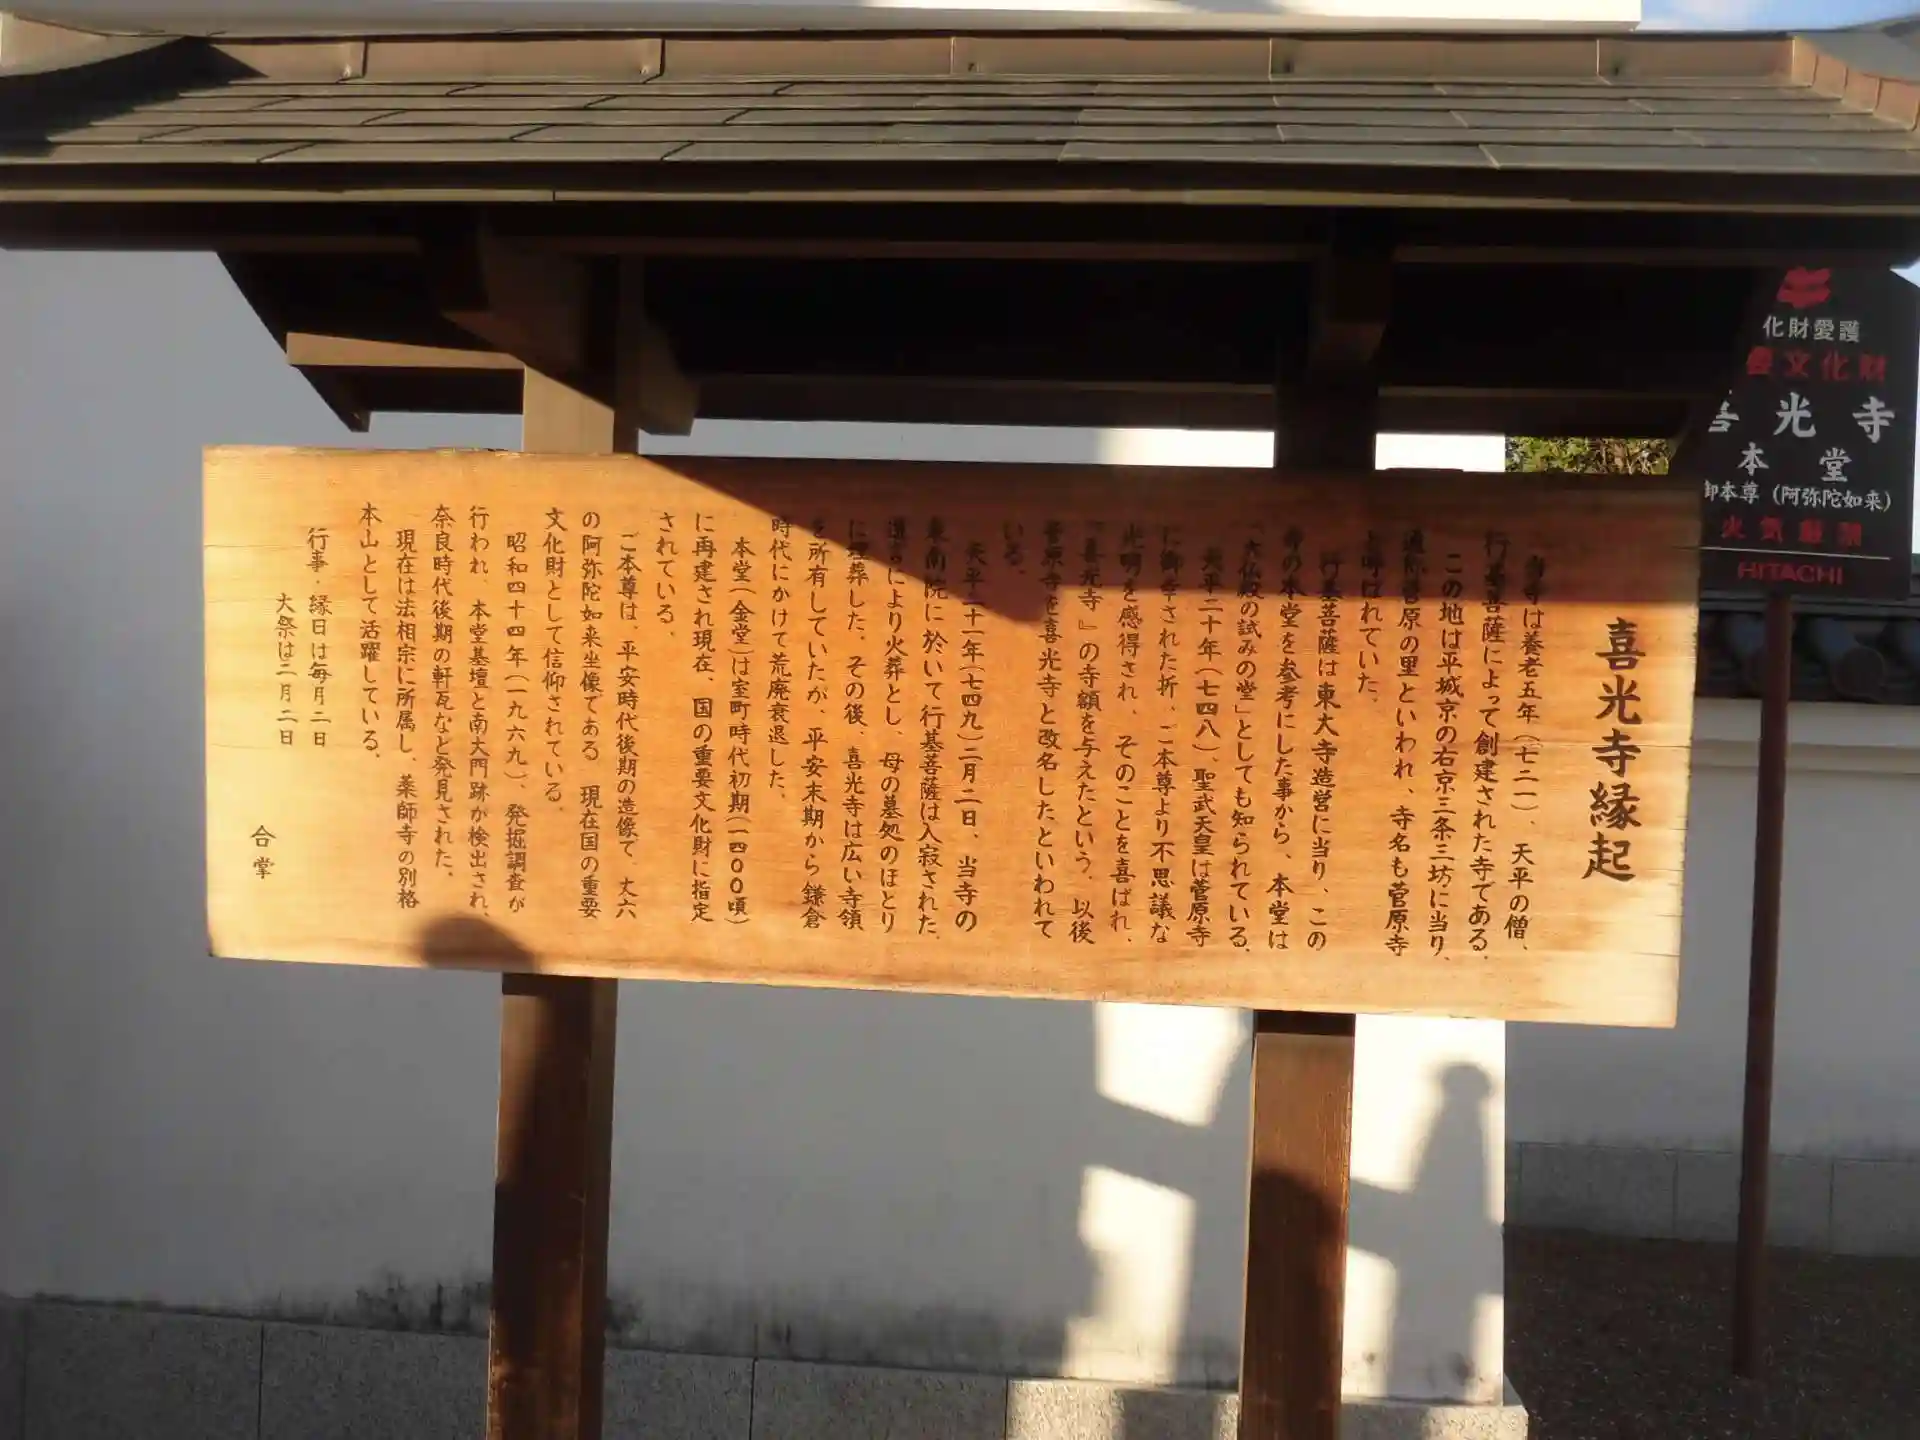 喜光寺縁起
当寺は養老五年（七二一）、天平の僧、
行基菩薩によって創建された寺である。
この地は平城京の右京三条三坊に当り、
通称菅原の里といわれ、寺名も菅原寺
と呼ばれていた。
行基菩薩は東大寺造営に当り、この
寺の本堂を参考にした事から、本堂は
「大仏殿の試みの堂」としても知られている。
天平二十年（七四八）、聖武天皇は菅原寺
に御幸された折、ご本尊より不思議な
光明を感得され、そのことを喜ばれ、
『喜光寺』の寺額を与えたという。以後
菅原寺を喜光寺と改名したといわれて
いる。
天平二十一年（七四九）二月二日、当寺の
東南院に於いて行基菩薩は入寂された。
遺言により火葬とし、母の墓処のほとり
に埋葬した。その後、喜光寺は広い寺領
を所有していたが、平安末期から鎌倉
時代にかけて荒廃衰退した。
本堂（金堂）は室町時代初期（一四００頃）
に再建され現在、国の重要文化財に指定
されている。
ご本尊は、平安時代後期の造像で、丈六
の阿弥陀如来坐像である 現在国の重要
文化財として信仰されている。
昭和四十四年（一九六九）、発掘調査が
行われ、本堂基壇と南大門跡が検出され、
奈良時代後期の軒瓦など発見された。
現在は法相宗に所属し、薬師寺の別格
本山として活躍している。
行事・縁日は毎月二日
大祭は二月二日
合掌
化財愛護
要文化財
喜光寺
本堂
御本尊（阿弥陀如来）
火気厳禁
HITACHI